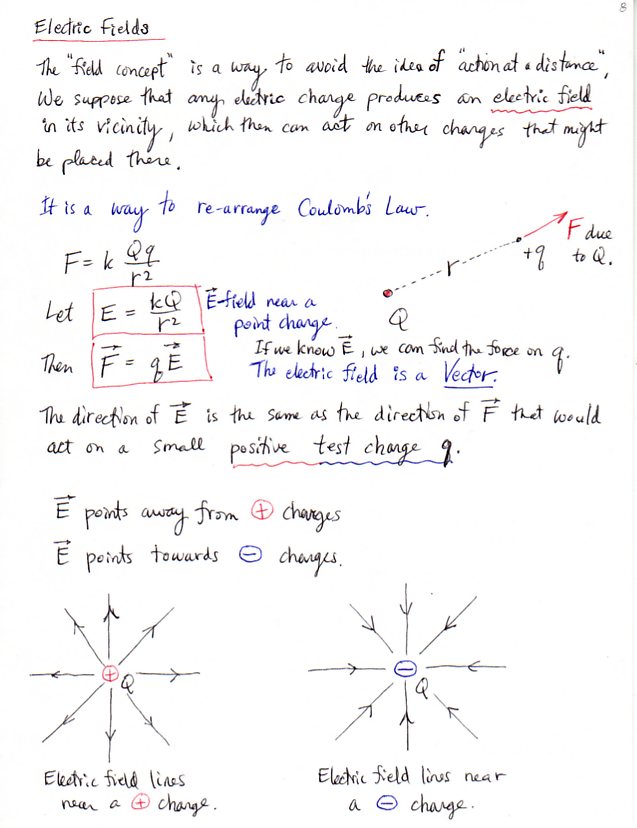 8
Electric Fields
The "field concept" is a way to avoid the idea of "action at a distance",
We suppose that any electric charge produces an electric field
in its vicinity, which then can act on other charges that might
be placed there.
It is a way to re-arrange Coulomb's Law.
F = k Qq/r²
r
+q
F due
to Q.
Q
Let E = kQ/r² E⃗-field near a
point charge.
If we know E⃗, we can find the force on q.
Then F⃗ = qE⃗ The electric field is a Vector.
The direction of E⃗ is the same as the direction of F⃗ that would
act on a small positive test charge q.
E⃗ points away from ⊕ charges
E⃗ points towards ⊖ charges.
+ Q
− Q
Electric field lines
near a ⊕ charge.
Electric field lines near
a ⊖ charge.